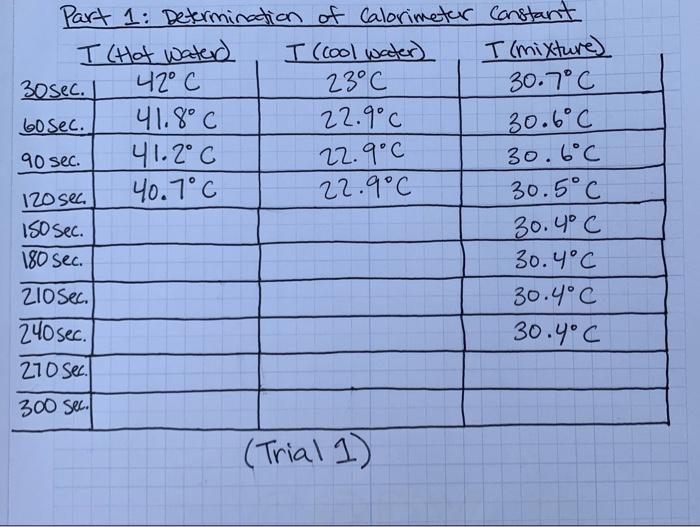 Part 1: Determination of Calorimeter Constant
T (Hot water) T (cool water) T (mixture)
30 sec. 42° C 23°C 30.7° C
60 sec. 41.8° C 22.9°C 30.6°C
90 sec. 41.2° C 22.9°C 30.6°C
120 sec. 40.7° C 22.9°C 30.5°C
150 sec. 30.4° C
180 sec. 30.4°C
210 sec. 30.4°C
240 sec. 30.4°C
270 sec.
300 sec.
(Trial 1)